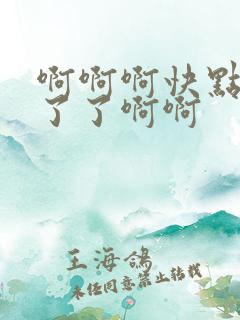 啊啊啊快點
了了啊啊
王海鴿
未经同意禁止转载